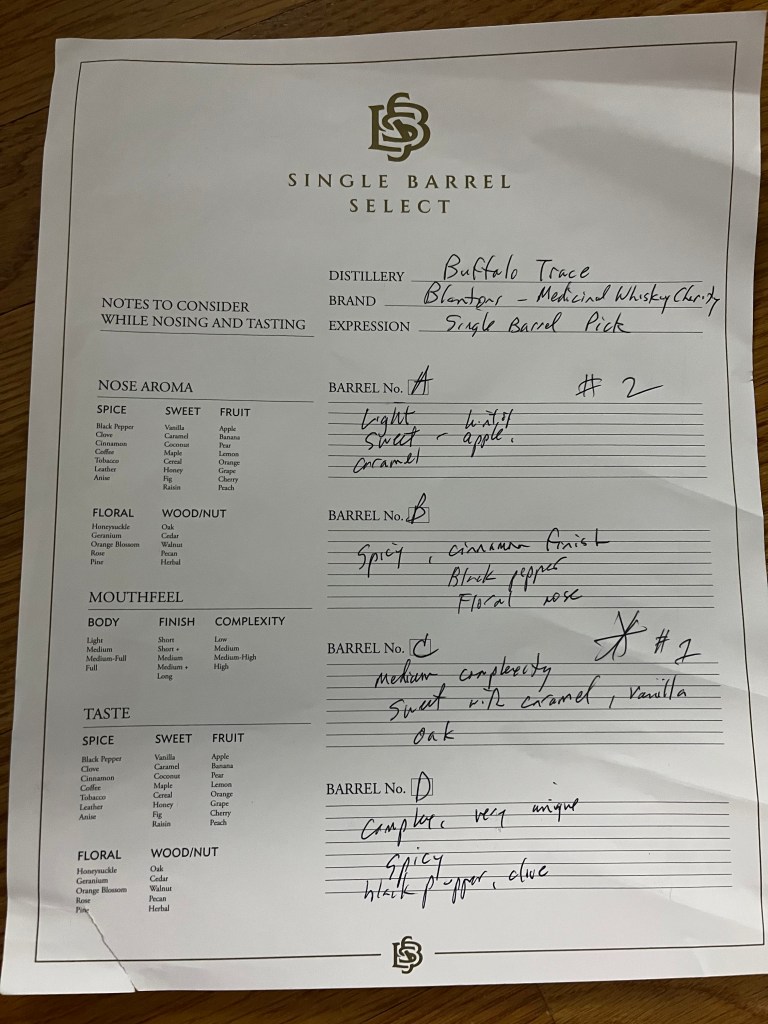 SBS
SINGLE BARREL
SELECT
NOTES TO CONSIDER
WHILE NOSING AND TASTING
DISTILLERY Buffalo Trace
BRAND Blantons - Medicinal Whiskey Charity
EXPRESSION Single Barrel Pick
NOSE AROMA
SPICE SWEET FRUIT
Black Pepper Vanilla Apple
Clove Caramel Banana
Cinnamon Coconut Pear
Coffee Maple Lemon
Tobacco Cereal Orange
Leather Honey Grape
Anise Fig Cherry
Raisin Peach
FLORAL WOOD/NUT
Honeysuckle Oak
Geranium Cedar
Orange Blossom Walnut
Rose Pecan
Pine Herbal
MOUTHFEEL
BODY FINISH COMPLEXITY
Light Short Low
Medium Short + Medium
Medium-Full Medium Medium-High
Full Medium + High
Long
TASTE
SPICE SWEET FRUIT
Black Pepper Vanilla Apple
Clove Caramel Banana
Cinnamon Coconut Pear
Coffee Maple Lemon
Tobacco Cereal Orange
Leather Honey Grape
Anise Fig Cherry
Raisin Peach
FLORAL WOOD/NUT
Honeysuckle Oak
Geranium Cedar
Orange Blossom Walnut
Rose Pecan
Pine Herbal
BARREL No. A #2
Light hint of
Sweet - apple.
caramel
BARREL No. B
Spicy, cinnamon finish
Black pepper
Floral nose
BARREL No. C #1
Medium complexity
Sweet with caramel, vanilla
oak
BARREL No. D
Complex, very unique
Spicy
black pepper,
SBS